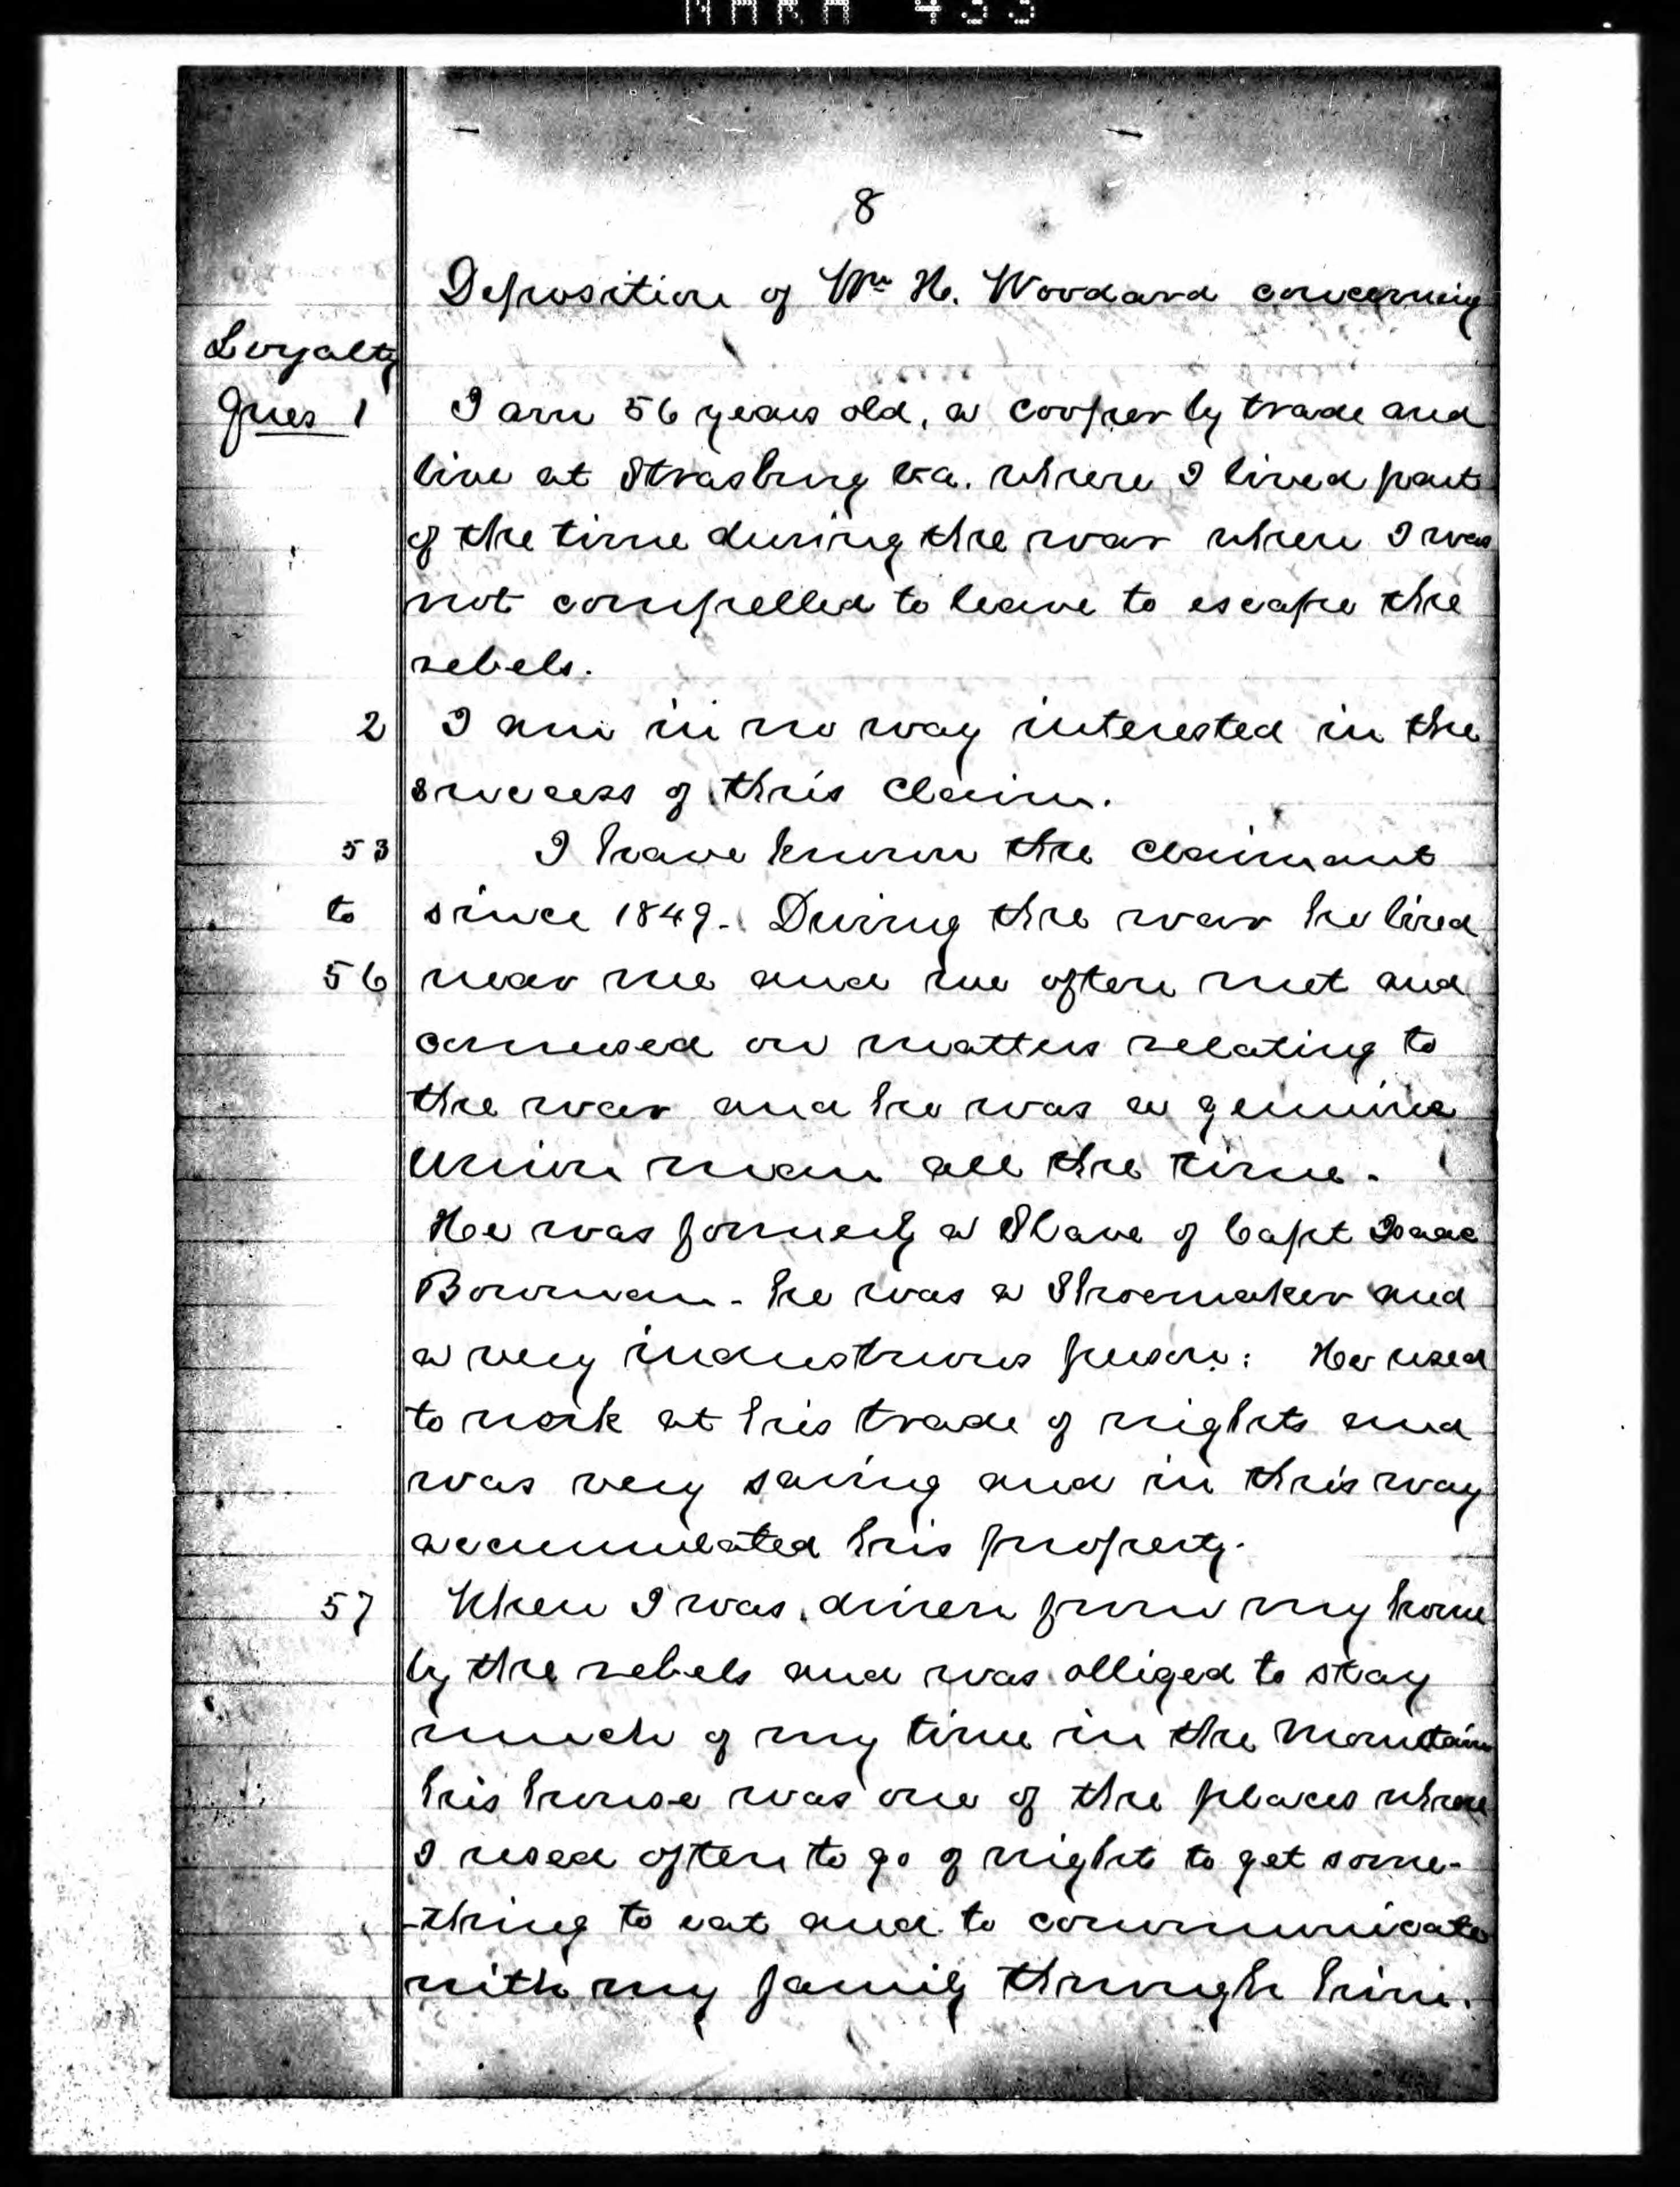 8
Deposition of Wm H. Woodard concerning
Loyalty
Ques 1 I am 56 years old, a cooper by trade and
live at Strasburg Va. where I lived part
of the time during the war when I was
not compelled to leave to escape the
rebels.
2 I am in no way interested in the
success of this claim.
53 I have known the claimant
to since 1849. During the war he lived
56 near me and we often met and
conversed on matters relating to
the war and he was a genuine
Union man all the time.
He was formerly a Slave of Capt Isaac
Bowman - he was a Shoemaker and
a very industrious person: He used
to work at his trade of nights and
was very saving and in this way
accumulated his property.
57 When I was driven from my home
by the rebels and was obliged to stay
much of my time in the Mountain
his house was one of the places where
I used often to go of night to get some-
-thing to eat and to communicate
with my family through him.